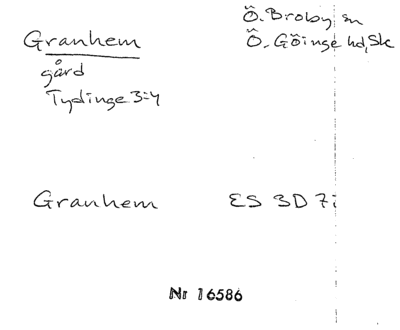 Granhem
gård
Tydinge 3:4
Ö. Broby sn
Ö. Göinge hd, Sk
Granhem ES 3D 7i
Nr 16586